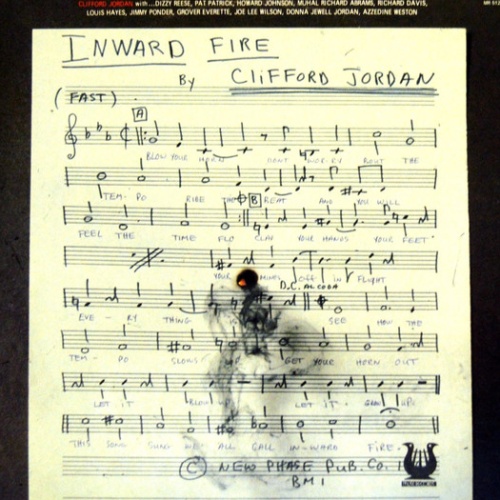 CLIFFORD JORDAN with ...DIZZY REESE, PAT PATRICK, HOWARD JOHNSON, MUHAL RICHARD ABRAMS, RICHARD DAVIS,
LOUIS HAYES, JIMMY PONDER, GROVER EVERETTE, JOE LEE WILSON, DONNA JEWELL JORDAN, AZZEDINE WESTON
INWARD FIRE
BY CLIFFORD JORDAN
(FAST)
A
BLOW YOUR HORN DONT WOR-RY BOUT THE
TEM-PO RIDE THE B BEAT AND YOU WILL
FEEL THE TIME FLO CLAP YOUR HANDS YOUR FEET
YOUR MINDS OFF IN FLIGHT
D.C. AL CODA
EVE-RY THING SEE HOW THE
TEM-PO SLOWS GET YOUR HORN OUT
LET IT BLOW LET IT UP!
THIS SONG SUNG WE ALL CALL IN-WARD FIRE.
© NEW PHASE PUB. CO.
BMI